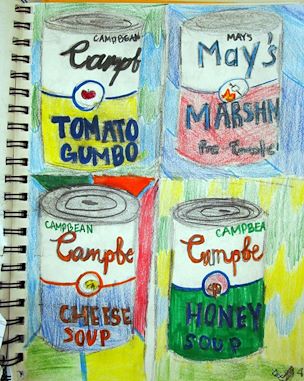 CAMPBEAN
Campb
TOMATO
GUMBO
MAY'S
May's
MARSHM
CAMPBEAN
Campbe
CHEESE
SOUP
CAMPBEA
Campbe
HONEY
SOUP